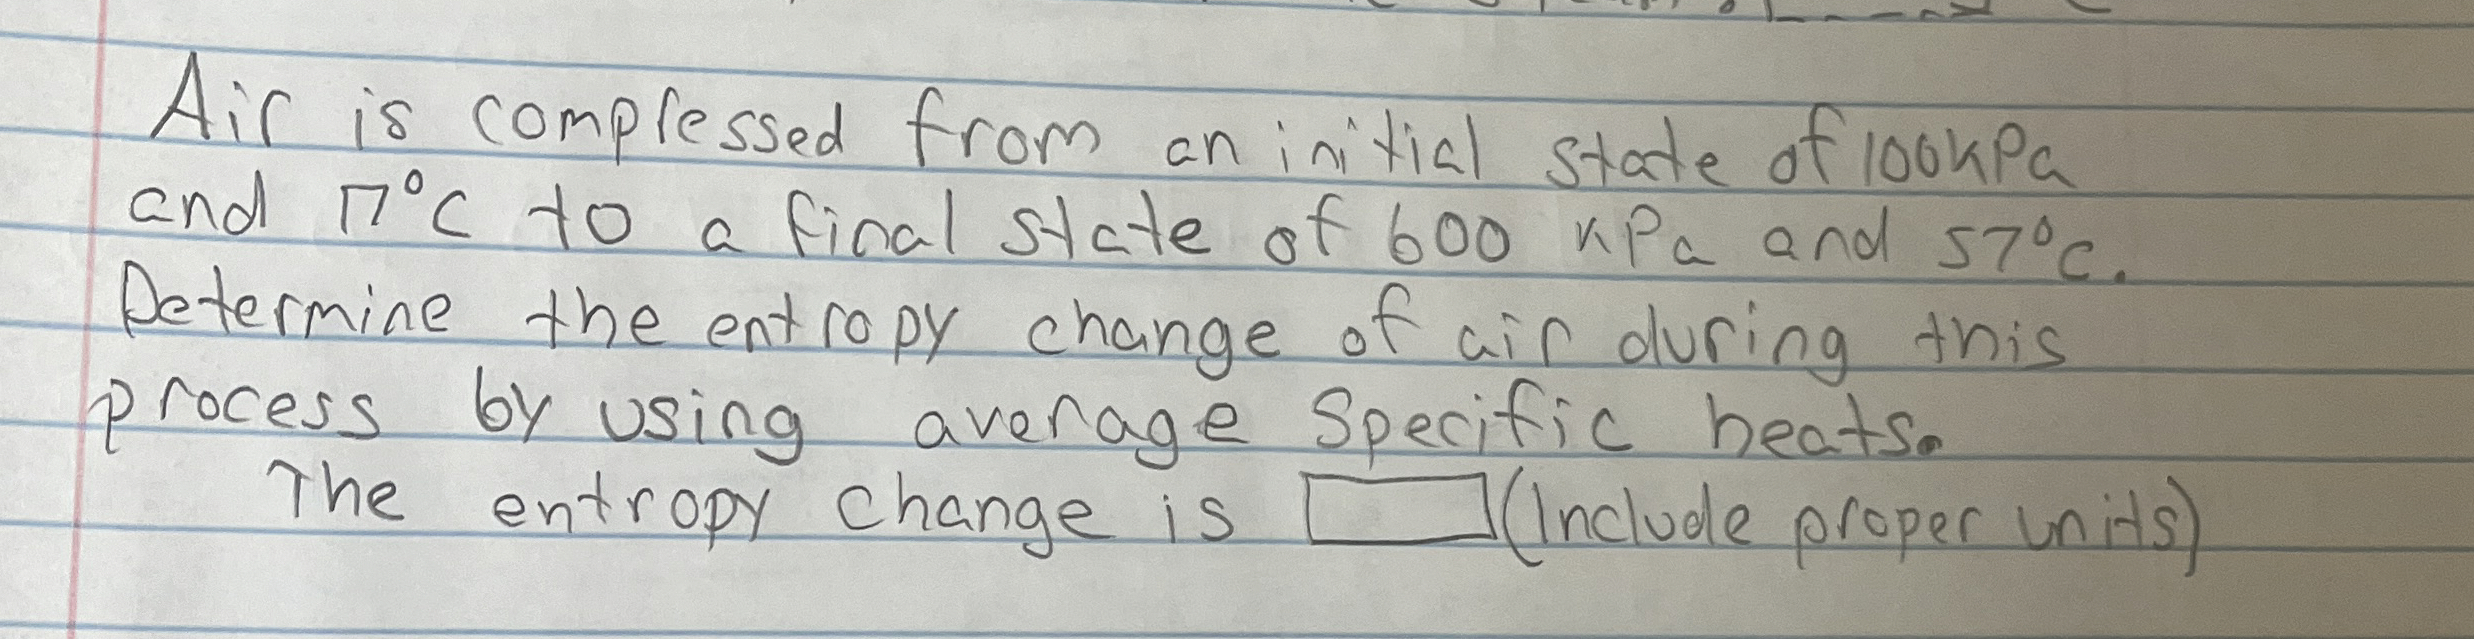 Air is compressed from an initial state of 100kPa
and 17°C to a final state of 600 kPa and 57°C.
Determine the entropy change of air during this
process by using average specific heats.
The entropy change is (Include proper units)